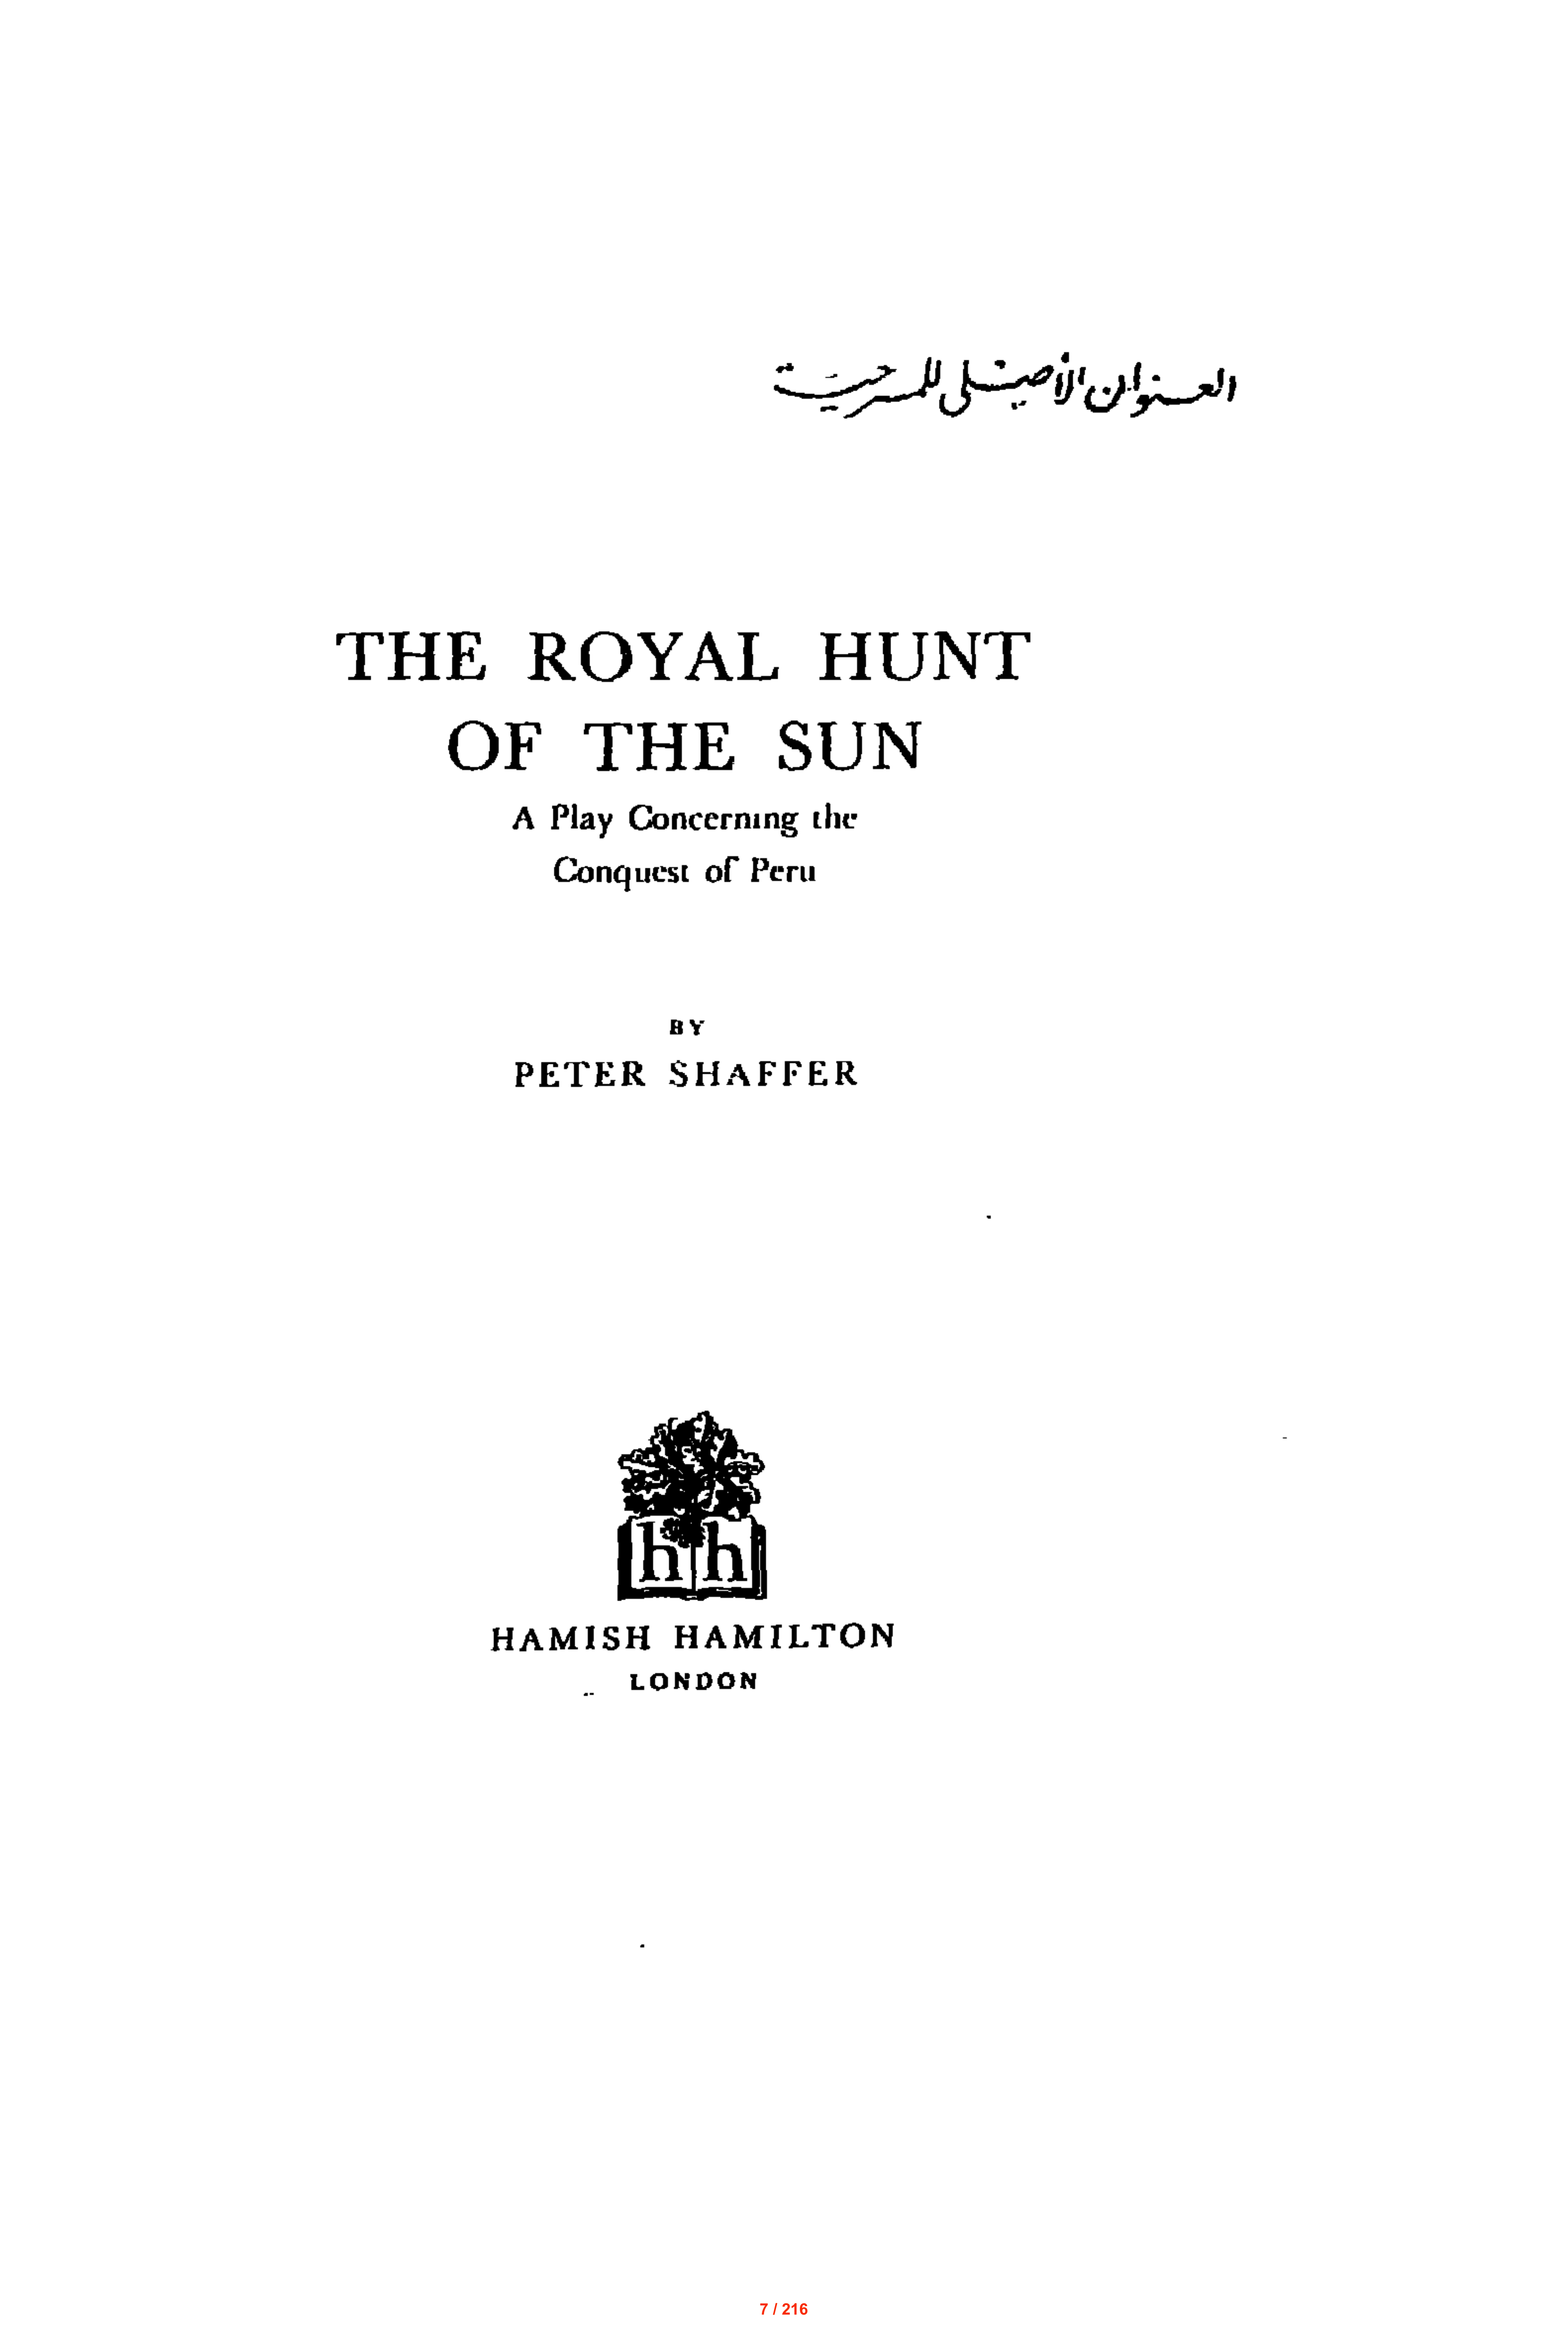 العنوان الأصلي للمسرحية
THE ROYAL HUNT
OF THE SUN
A Play Concerning the
Conquest of Peru
BY
PETER SHAFFER
h h
HAMISH HAMILTON
LONDON
7 / 216